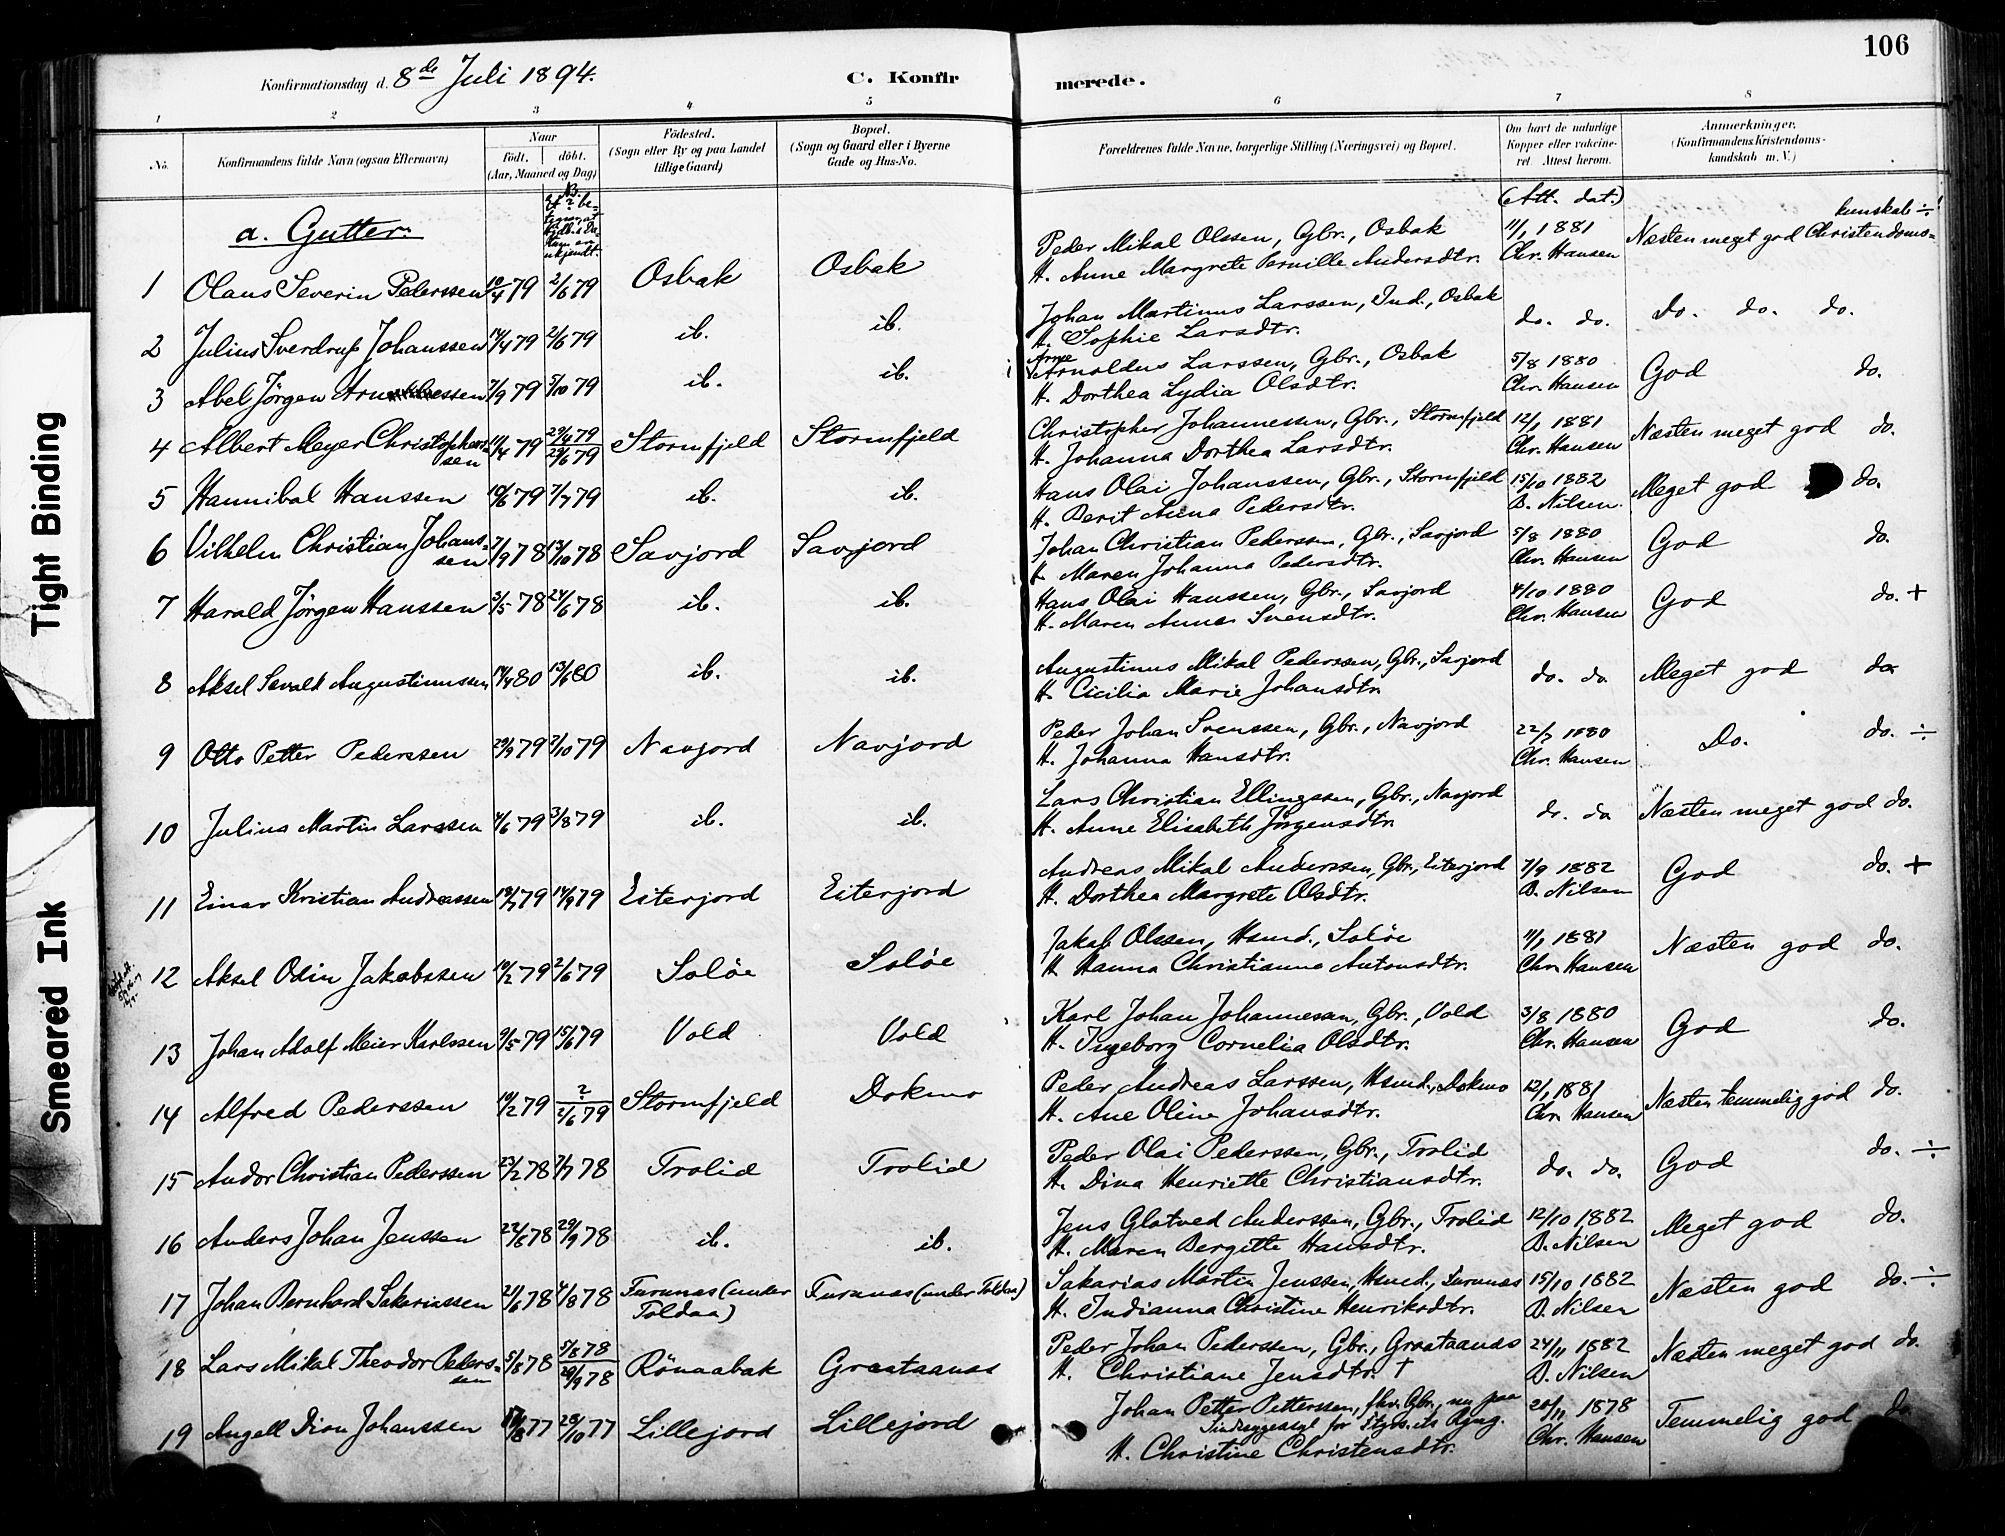 106
Konfirmationsdag d. 8de Juli 1894.
C. Konfirmerede.
1 2 3 4 5 6 7 8
No. Konfirmandens fulde Navn (ogsaa Efternavn) Naar født. døbt. (Aar, Maaned og Dag) Fødested. (Sogn eller By og paa Landet tillige Gaard) Bopæl. (Sogn og Gaard eller i Byerne Gade og Hus-No. Forældrenes fulde Navne, borgerlige Stilling (Næringsvei) og Bopæl. Om havt de naturlige Kopper eller vaccineret. Attest herom. Anmærkninger. (Konfirmandens Kristendomskundskab m. V.)
a. Gutter.
(Att. dat.)
1 Olaus Severin Pederssen 10/4 79 2/6 79 Osbak Osbak Peder Mikal Olssen, Gbr., Osbak 11/1 1881 Næsten meget god Christendoms= kunskab ÷
H. Anne Margrete Pernille Andersdtr. Chr. Hansen
2 Julius Sverdrup Johanssen 14/4 79 2/6 79 ib. ib. Johan Martinus Larssen, Ind., Osbak do. do. Do. do. do.
H. Sophie Larsdtr.
3 Abel Jörgen 7/9 79 5/10 79 ib. ib. Arnoldus Larssen, Gbr., Osbak 5/8 1880 God do.
H. Dorthea Lydia Olsdtr. Chr. Hansen
4 Albert Meyer Christophersen 11/4 79 29/4 79 29/6 79 Stormfjeld Stormfjeld Christopher Johannessen, Gbr., Stormfjeld 12/1 1881 Næsten meget god do.
H. Johanna Dorthea Larsdtr. Chr. Hansen
5 Hannibal Hanssen 10/6 79 7/7 79 ib. ib. Hans Olai Johanssen, Gbr., Stormfjeld 15/10 1882 Meget god do.
H. Berit Anna Pedersdtr. B. Nilsen.
6 Vilhelm Christian Johanssen 7/9 78 13/10 78 Savjord Savjord Johan Christian Pederssen, Gbr., Savjord 5/8 1880 God do.
H. Maren Johanna Pedersdtr. Chr. Hansen
7 Harald Jörgen Hanssen 3/5 78 24/6 78 ib. ib. Hans Olai Hanssen, Gbr., Savjord 4/10 1880 God do. +
H. Maren Anna Svensdtr. Chr. Hansen
8 Aksel Sevald Augustinussen 14/4 80 13/6 80 ib. ib. Augustinus Mikal Pederssen, Gbr., Savjord do. do. Meget god do.
H. Cicilia Marie Johansdtr.
9 Otto Petter Pederssen 29/9 79 Navjord Navjord Peder Johan Svenssen, Gbr., Navjord 1880 Do. do. ÷
H. Johanna Hansdtr. Chr. Hansen
10 Julius Martin Larssen 3/8 79 ib. ib. Lars Christian Ellingssen, Gbr., Navjord do. do. Næsten meget god do.
H. Anne Elisabeth Jörgensdtr.
11 Einar Kristian Andreassen 14/9 79 Eiterjord Eiterjord Andreas Mikal Anderssen, Gbr., Eiterjord 7/9 1882 God do. +
H. Dorthea Margrete Olsdtr. B. Nilsen
12 Aksel Odin Jakobssen 10/2 79 2/6 79 Solöe Solöe Jakob Olssen, Hsmd., Solöe 11/1 1881 Næsten god do.
H. Hanna Christianna Antonsdtr. Chr. Hansen
13 Johan Adolf Meier Karlssen 9/5 79 15/6 79 Vold Vold Karl Johan Johannessen, Gbr., Vold 3/8 1880 God do.
H. Ingeborg Cornelia Olsdtr. Chr. Hansen
14 Alfred Pederssen 10/2 79 ? 2/6 79 Stormfjeld Dokmo Peder Andreas Larssen, Hsmd., Dokmo 12/1 1881 Næsten temmelig god do.
H. Ane Oline Johansdtr. Chr. Hansen
15 Andor Christian Pederssen 23/2 78 7/7 78 Trolid Trolid Peder Olai Pederssen, Gbr., Trolid do. do. God do. ÷
H. Dina Henriette Christiansdtr.
16 Anders Johan Jenssen 22/8 78 29/9 78 ib. ib. Jens Glatved Anderssen, Gbr., Trolid 12/10 1882 Meget god do.
H. Maren Bergitte Hansdtr. B. Nilsen
17 Johan Bernhard Sakariassen 21/6 78 4/8 78 Furunas (under Toldaa) Furunas (under Toldaa) Sakarias Martin Jenssen, Hsmd., Furunas 15/10 1882 Næsten god do. ÷
H. Indianna Christine Henriksdtr. B. Nilsen
18 Lars Mikal Theodor Pederssen 5/8 78 5/8 78 29/9 78 Rönaabak Graataanæs Peder Johan Pederssen, Gbr., Graataanæs 24/11 1882 Næsten meget god do.
H. Christiane Jensdtr. † B. Nilsen
19 Angell Dion Johanssen 28/10 77 Lillejord Lillejord Johan Petter Petterssen, fhv. Gbr., nu paa 20/11 1878 Temmelig god do.
H. Christine Christensdtr. Chr. Hansen
Tight Binding
Smeared Ink